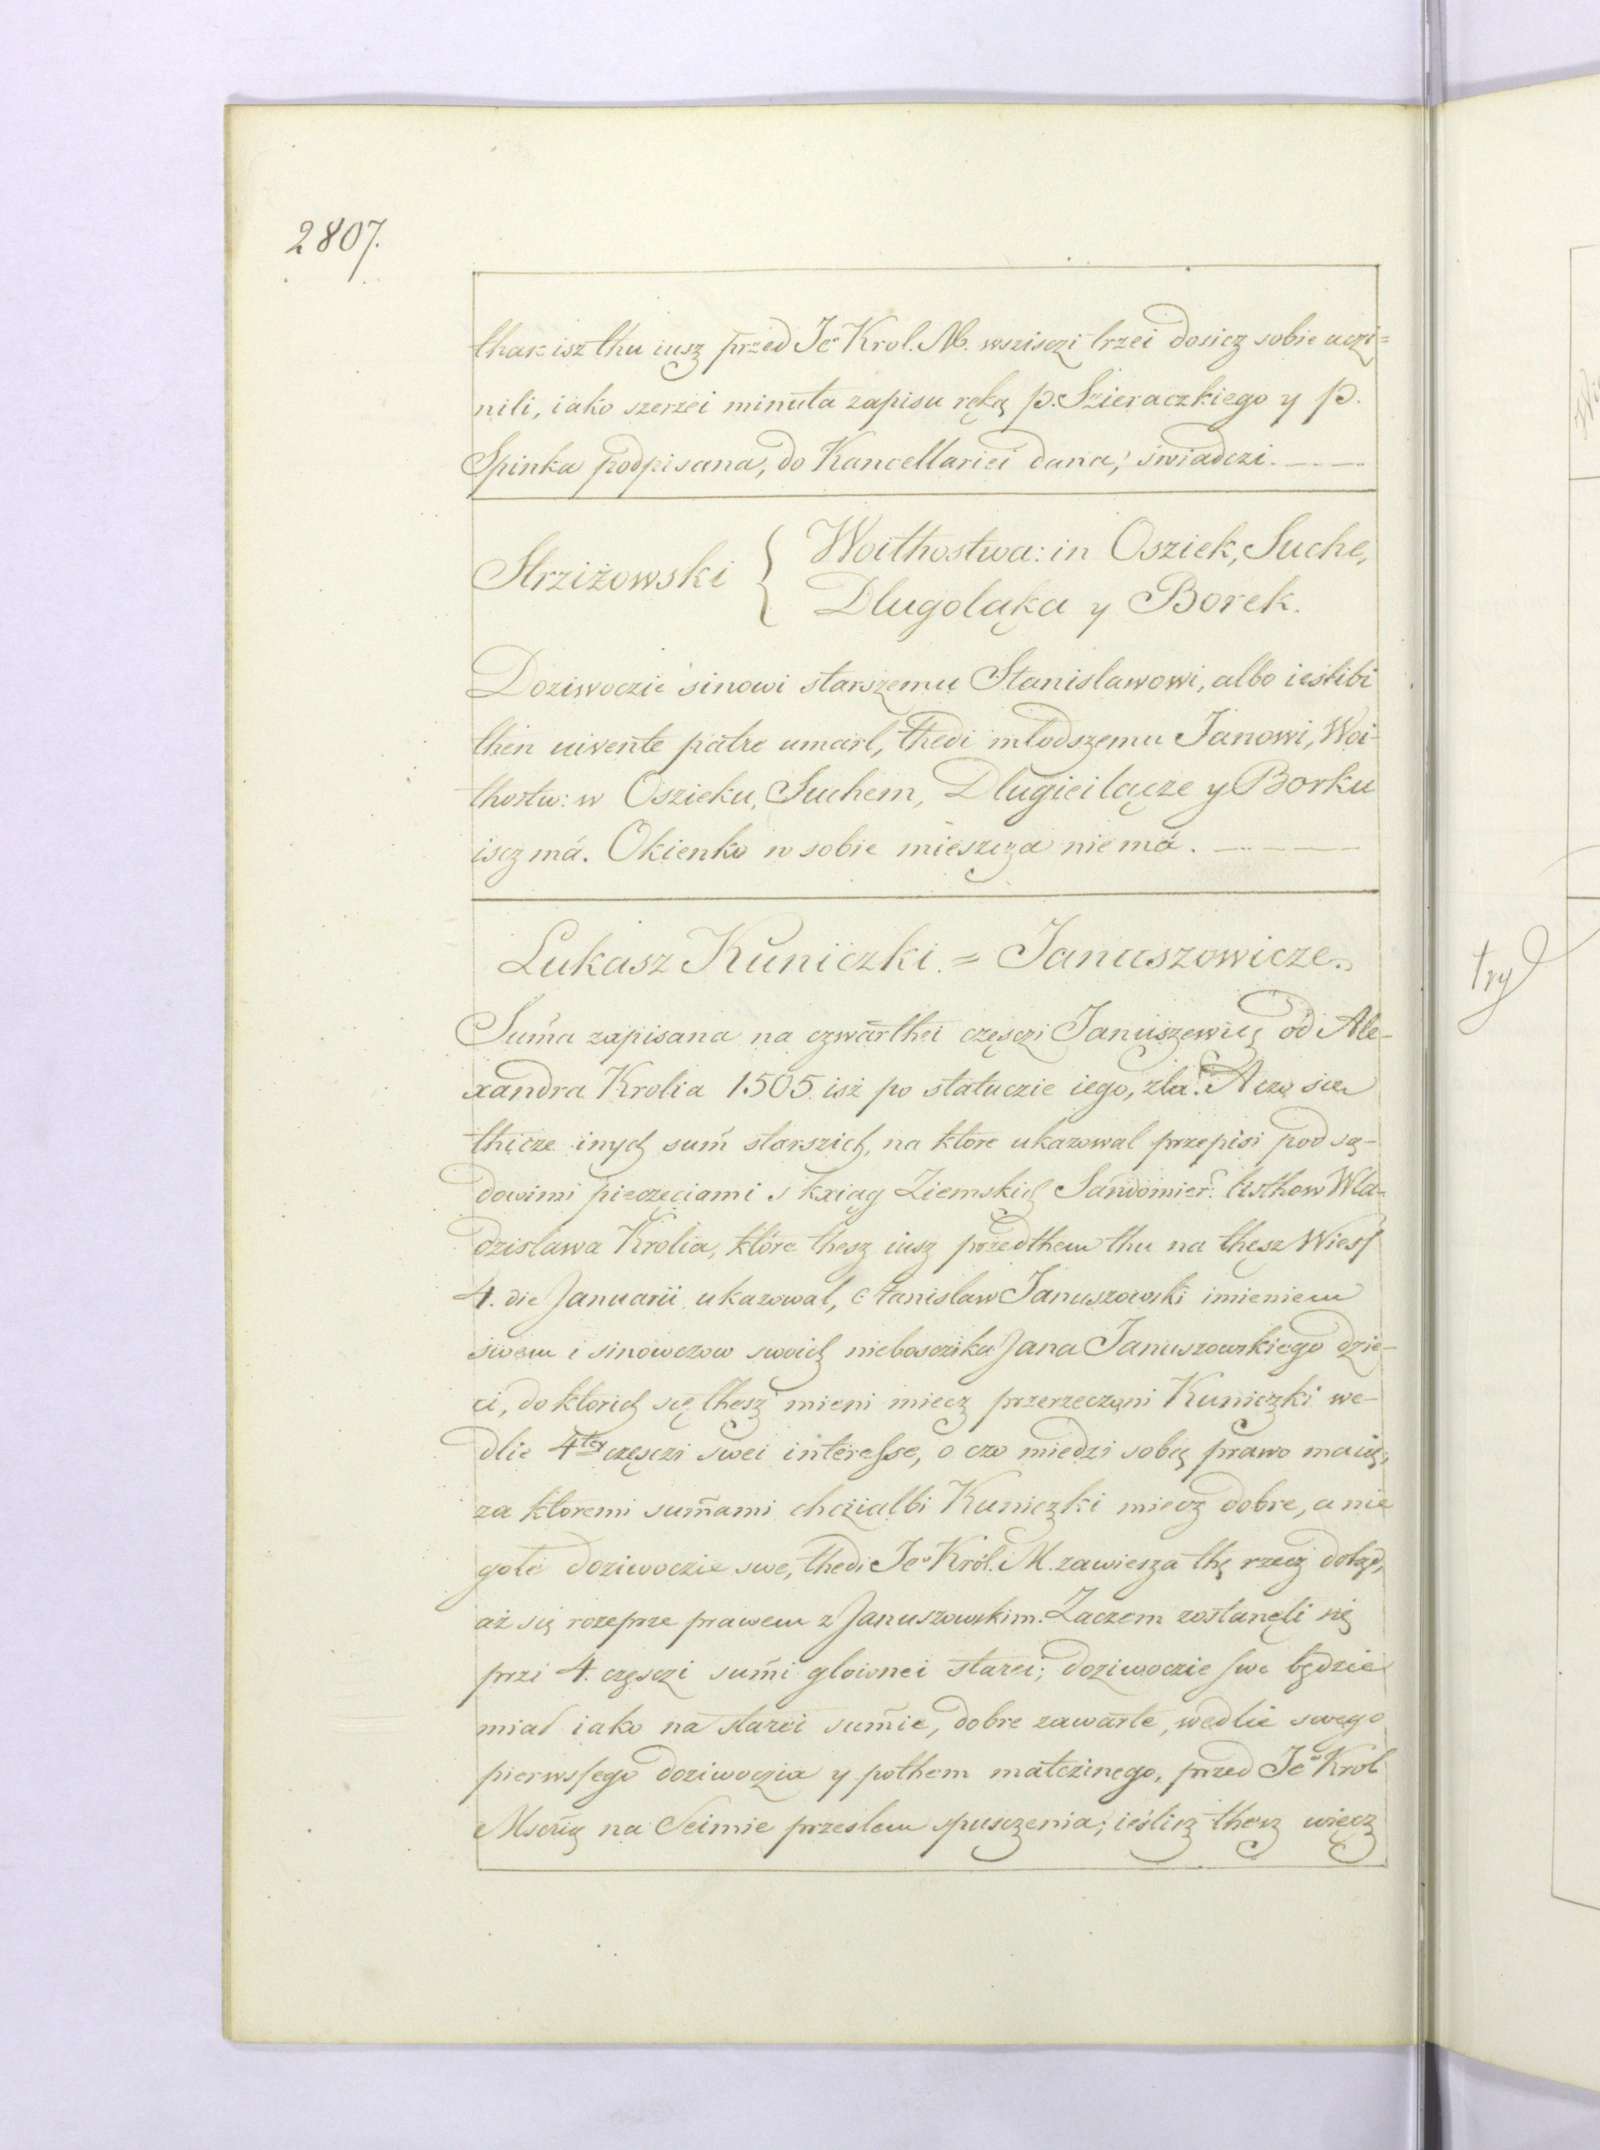 2807.
thak isz thu iusz przed Je° Krol. M. wszisczi trzei dosicz sobie uczi=
nili, iako szerzei minuta zapisu ręką p. Szieraczkiego y p.
Spinka podpisana, do Kancellariei dana, swiadczi.
Strziżowski { Woithostwa: in Osziek, Suche,
Dlugoląka y Borek.
Doziwoczie sinowi starszemu Stanislawowi, albo ieslibi
then uivente patre umarl, thedi mlodszemu Janowi, Woi-
thostw: w Oszieku, Suchem, Dlugieiłącze y Borku
iscz má. Okienko w sobie miescza nie má.
Lukasz Kuniczki. = Januszowicze.
Suma zapisana na czwarthei częsczi Januszewicz od Ale-
xandra Krolia 1505 isż po statuczie iego, zła. A czo się
thicze inych sum̃ starszich, na ktore ukazowal przepisi pod są-
dowimi pieczęciami s kxiąg Ziemskich Sandomier: listhow Wla-
dzislawa Krolia, ktore thesz iusz przedthem thu na thęsz Wiesſ
4. die Januarii ukazowal, Stanislaw Januszowski imieniem
swem i sinowczow swoich nieboszczika Jana Januszowskiego dzie-
ci, do ktorich się thesz mieni miecz przerzeczoni Kuniczki we-
dlie 4tey częsczi swei intereſse, o czo miedzi sobą prawo maią,
za ktoremi sum̃ami chczialbi Kuniczki miecz dobre, a nie
gołe doziwoczie swe, thedi Je° Król. M. zawiesza thę rzecz dotąd,
aż się rozeprze prawem z Januszowskim. Zaczem zostanęli się
przi 4. częsczi sum̃i glownei starei; doziwoczie ſwe będzie
miał iako na starei sum̃ie, dobre zawarte, wedlie swego
pierwſego doziwoczia y pothem matczinego, przed Je° Krol
Mscią na Seimie przeslem spusczenia; ieslisz thesz więcz
try